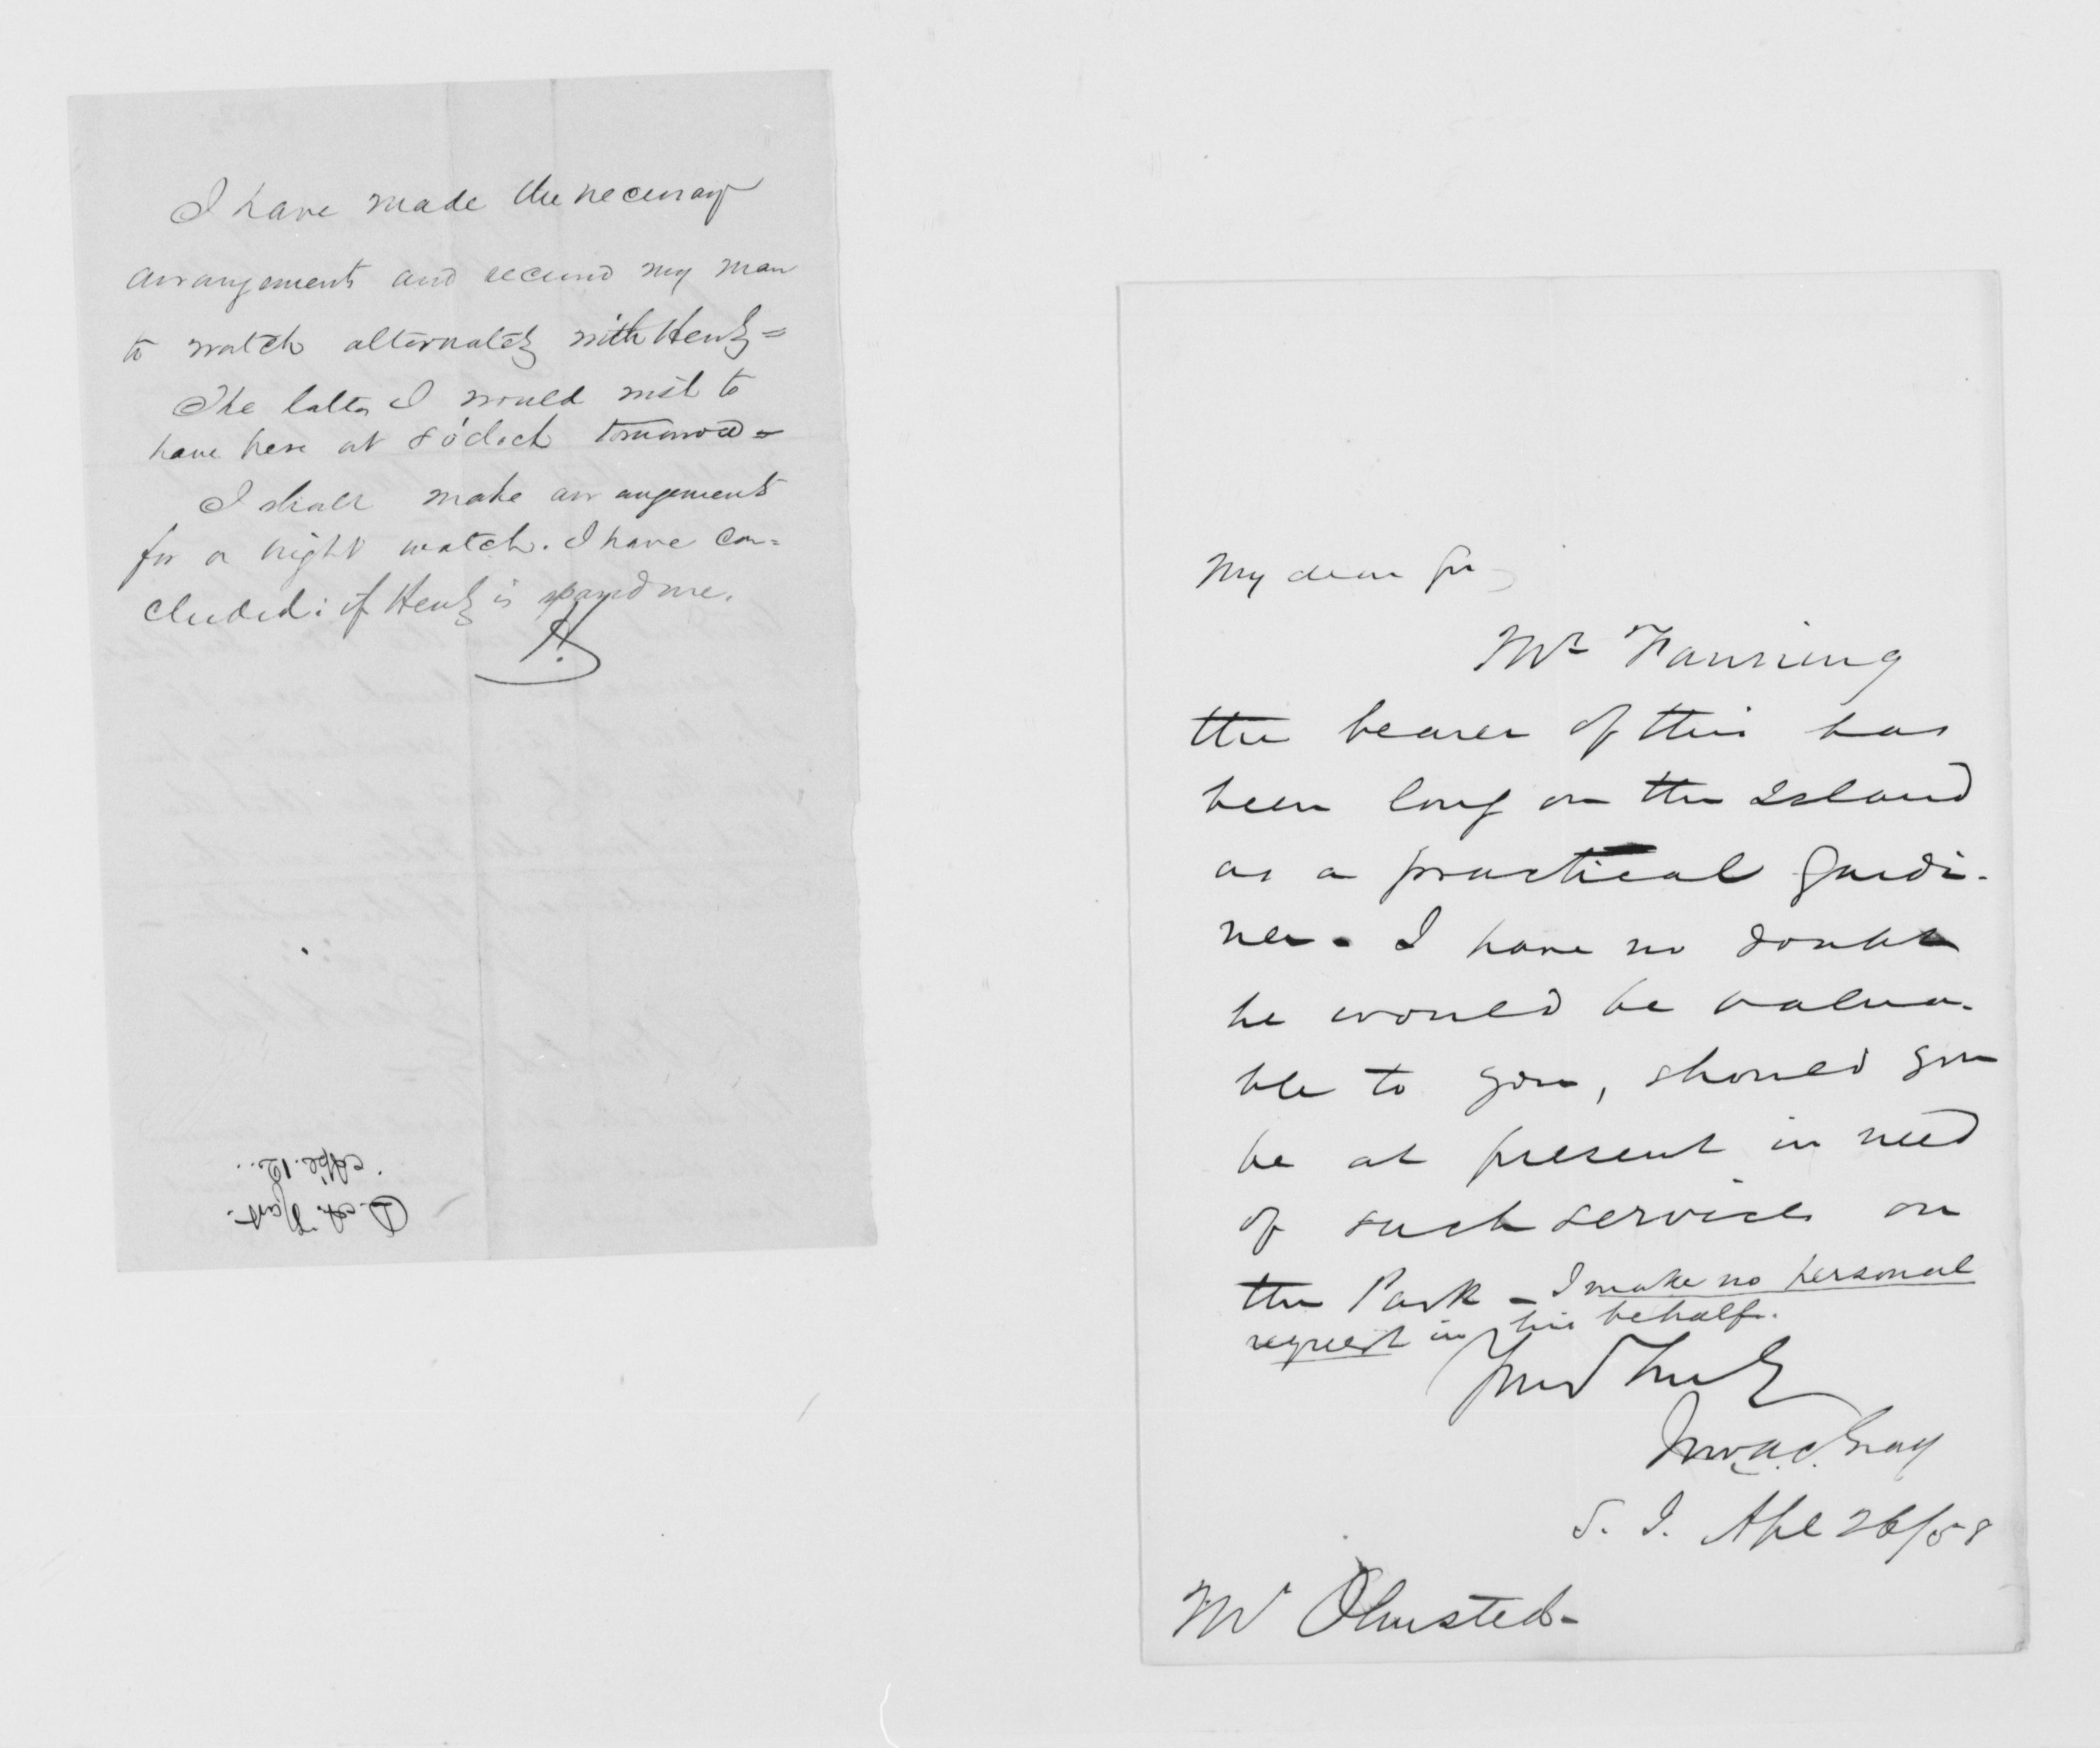 I have made the necessary
arrangements and secured my man
to watch alternately with Hentz =
The latter I would wish to
have here at 8 o'clock tomorrow =
I shall make arrangements
for a night watch. I have con=
cluded: if Hentz is spared me.
H.
D. A. Hart.
Ap. 12.
My dear Sir,
Mr Fanning
the bearer of this has
been long on the Island
as a practical gardi-
ner. I have no doubt
he would be valua-
ble to you, should you
be at present in need
of such services on
the Park - I make no personal
request in his behalf.
Yours truly
Gray
S. I. Apl 26/58
Mr Olmsted-